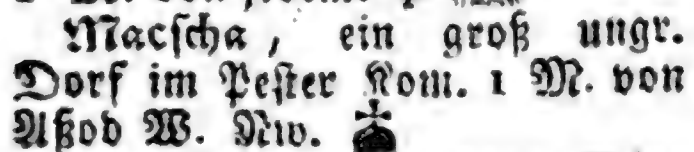 Macſcha, ein groß ungr.
Dorf im Peſter Kom. 1 M. von
Aßod W. Nw.